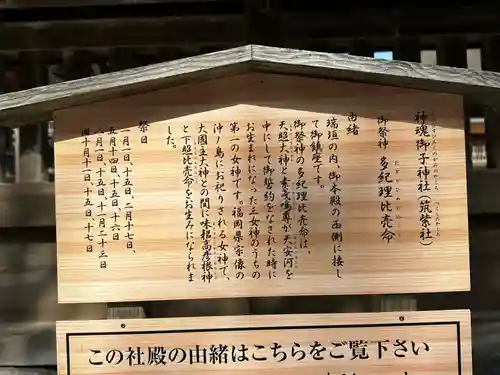 神魂御子神社（筑紫社）
御祭神 多紀理比売命
由緒
瑞垣の内、御本殿の西側に接し
て御鎮座です。
御祭神の多紀理比売命は、
天照大神と素戔嗚尊が天安河を
中にして御誓約をなされた時に
お生まれになった三女神のうちの
第一の女神です。福岡県宗像の
沖ノ島にお祀りされる女神で、
大国主大神との間に味耜高彦根神
と下照比売命をお生みになられま
した。
祭日
二月一日、十五日、二月十七日、
五月十四日、十五日、十六日
八月一日、十五日、十一月二十三日
旧十月十一日、十五日、十七日
この社殿の由緒はこちらをご覧下さい